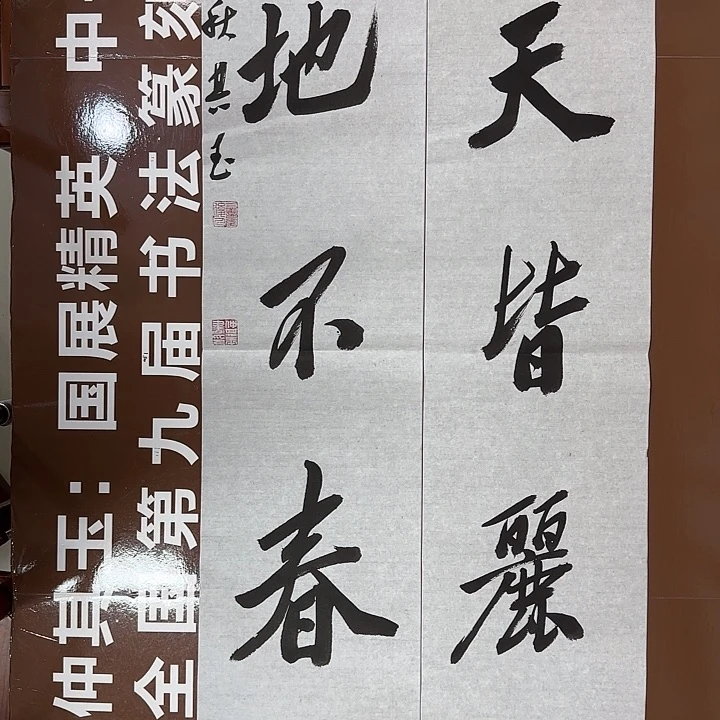 天皆麗
地不春
秋其玉
仲其玉：国展精英 中
全国第九届书法篆刻